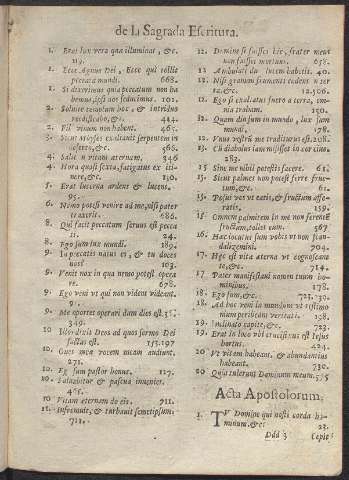 de la Sagrada Escritura.
1. Erat lux vera quæ illuminat, &c.
119.
1. Ecce Agnus Dei, Ecce qui tollit
peccata mundi. 668.
1. Si dixerimus quia peccatum non ha
bemus, ipsi nos seducimus. 102.
2. Solvite templum hoc, & intriduo
reedificabo, &c. 414.
2. Fili vinum non habent. 465.
3. Sicut Moyses exaltavit serpentem in
deserto, &c. 566.
4. Salit in vitam æternam. 346
4. Hora quasi sexta, fatigatus ex iti-
nere, &c. 10.
5. Erat lucerna ardens & lucens.
95.
6. Nemo potest venire ad me, nisi pater
traxerit. 686.
8. Qui facit peccatum servus est pecca
ti. 24.
8. Ego sum lux mundi. 189.
9. In peccatis natus es, & tu doces
nos? 103.
9. Venit nox in qua nemo potest opera
re. 678.
9. Ego veni vt qui non vident videant.
91.
9. Me oportet operari dum dies est. 367.
349.
10. Illos dixit Deos ad quos sermo Dei
factus est. 153.197
10. Oues meæ vocem meam audiunt.
271.
10. Ego sum pastor bonus. 117.
10. pascua inueniet.
465.
10 Vitam æternam do eis. 711.
11. Infremuit, & turbauit semetipsum.
711.
11. Domine si fuisses hic, frater meus
non fuisset mortuus. 658.
12 Ambulate dum lucem habetis. 40.
12. Nisi granum frumenti cadens in ter
ra, &c. 12.506.
12. Ego si exaltatus fuero a terra, om-
nia traham. 150.
12. Quam diu sum in mundo, lux sum
mundi. 178.
12. Vnus vestrũ me traditurus est. 208.
13. Cũ diabolus iam misisset in cor eius.
283.
15 Sine me nihil potestis facere. 61.
15. Sicut palmes non potest ferre fruc-
tum, &c. 61.
15. Posui vos vt eatis, & fructum affe-
ratis. 159.
15 Omnem palmitem in me non ferentẽ
fructum, tollet eum. 567
16. Hæc locutus sum vobis vt non scan-
dalizemini. 704.
17. Hæc est vita æterna vt cognoscant
te, &c. 714.
17 Pater manifestaui nomen tuum ho-
minibus. 178.
18. Ego sum, &c. 721.730.
18 Ad hoc veni in mundum vt testimo
nium perhibeam veritati. 198.
19 Inclinato capite, &c. 723.
19. Erat in loco vbi crucifixus est Iesus
hortus. 424.
20 Vt vitam habeant, & abundantius
habeant. 730.
20 Quia tulerunt Dominum meum. 575
Acta Apostolorum.
1. TV Domine qui nosti corda ho-
minum, &c. 23.
Ddd 3 Cepit